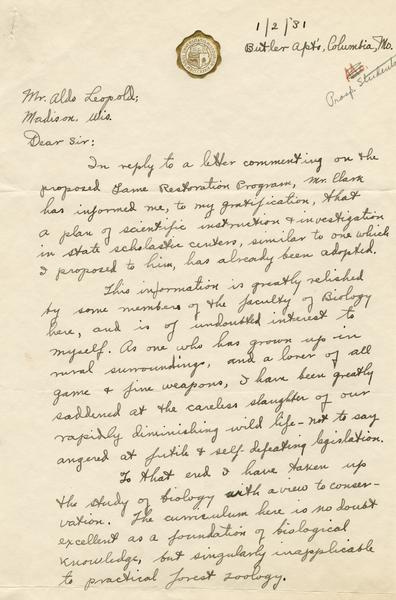 1/2/31
Butler Apt's, Columbia, Mo.
Prosp. Students
Mr. Aldo Leopold;
Madison, Wis.
Dear Sir:
In reply to a letter commenting on the
proposed Game Restoration Program, Mr. Clark
has informed me, to my gratification, that
a plan of scientific instruction & investigation
in state scholastic centers, similar to one which
I proposed to him, has already been adopted.
This information is greatly relished
by some members of the faculty of Biology
here, and is of undoubted interest to
myself. As one who has grown up in
rural surroundings, and a lover of all
game & fine weapons, I have been greatly
saddened at the careless slaughter of our
rapidly diminishing wild life - not to say
angered at futile & self-defeating legislation.
To that end I have taken up
the study of biology with a view to conser-
vation. The curriculum here is no doubt
excellent as a foundation of biological
knowledge, but singularly inapplicable
to practical forest zoology.